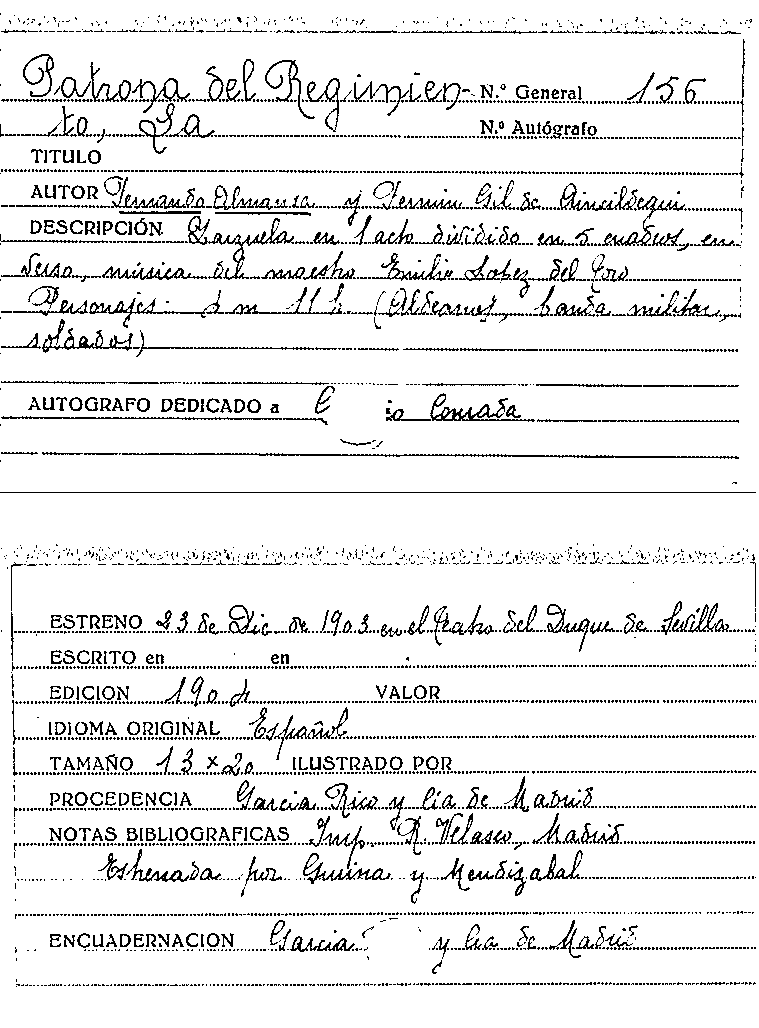 Patrona del Regimien- N.º General 156
to, La N.º Autógrafo
TITULO
AUTOR Fernando Almansa y Fermin Gil de Aincildegui
DESCRIPCIÓN Zarzuela en 1 acto dividido en 5 cuadros, en
verso, música del maestro Emilio Lopez del Toro
Personajes: 4 m 11 h (Aldeanos, banda militar,
soldados)
AUTOGRAFO DEDICADO a
ESTRENO 23 de Dic de 1903 en el Teatro del Duque de Sevilla
ESCRITO en en
EDICION 1904 VALOR
IDIOMA ORIGINAL Español
TAMAÑO 13 x 20 ILUSTRADO POR
PROCEDENCIA Garcia Rico y Cia de Madrid
NOTAS BIBLIOGRAFICAS Imp. R. Velasco, Madrid
Estrenada por Guina y Mendizabal
ENCUADERNACION Garcia y Cia de Madrid